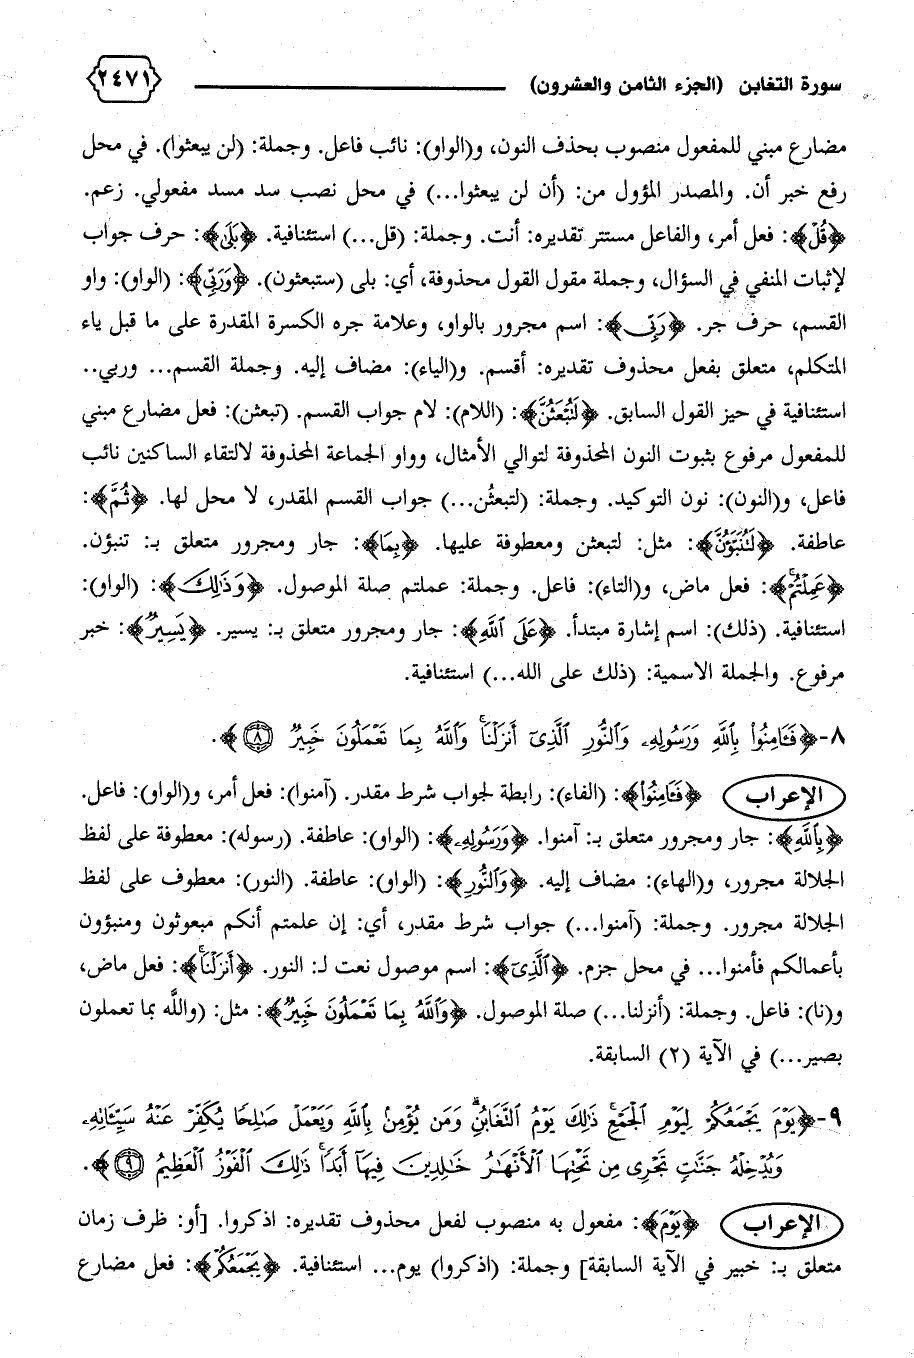 سورة التغابن (الجزء الثامن والعشرون) ٢٤٧١
مضارع مبني للمفعول منصوب بحذف النون، و(الواو): نائب فاعل. وجملة: (لن يبعثوا). في محل
رفع خبر أن. والمصدر المؤول من: (أن لن يبعثوا...) في محل نصب سد مسد مفعولي. زعم.
﴿قُلْ﴾: فعل أمر، والفاعل مستتر تقديره: أنت. وجملة: (قل...) استئنافية. ﴿بَلَىٰ﴾: حرف جواب
لإثبات المنفي في السؤال، وجملة مقول القول محذوفة، أي: بلى (ستبعثون). ﴿وَرَبِّي﴾: (الواو): واو
القسم، حرف جر. ﴿رَبِّي﴾: اسم مجرور بالواو، وعلامة جره الكسرة المقدرة على ما قبل ياء
المتكلم، متعلق بفعل محذوف تقديره: أقسم. و(الياء): مضاف إليه. وجملة القسم... وربي..
استئنافية في حيز القول السابق. ﴿لَتُبْعَثُنَّ﴾: (اللام): لام جواب القسم. (تبعثن): فعل مضارع مبني
للمفعول مرفوع بثبوت النون المحذوفة لتوالي الأمثال، وواو الجماعة المحذوفة لالتقاء الساكنين نائب
فاعل، و(النون): نون التوكيد. وجملة: (لتبعثُن...) جواب القسم المقدر، لا محل لها. ﴿ثُمَّ﴾:
عاطفة. ﴿لَتُنَبَّؤُنَّ﴾: مثل: لتبعثن ومعطوفة عليها. ﴿بِمَا﴾: جار ومجرور متعلق بـ: تنبؤن.
﴿عَمِلْتُمْ﴾: فعل ماض، و(التاء): فاعل. وجملة: عملتم صلة الموصول. ﴿وَذَٰلِكَ﴾: (الواو):
استئنافية. (ذلك): اسم إشارة مبتدأ. ﴿عَلَى ٱللَّهِ﴾: جار ومجرور متعلق بـ: يسير. ﴿يَسِيرٌ﴾: خبر
مرفوع. والجملة الاسمية: (ذلك على الله...) استئنافية.
٨-﴿فَـَٔامِنُوا۟ بِٱللَّهِ وَرَسُولِهِۦ وَٱلنُّورِ ٱلَّذِىٓ أَنزَلْنَا ۚ وَٱللَّهُ بِمَا تَعْمَلُونَ خَبِيرٌ ٨﴾.
الإعراب ﴿فَـَٔامِنُوا۟﴾: (الفاء): رابطة لجواب شرط مقدر. (آمنوا): فعل أمر، و(الواو): فاعل.
﴿بِٱللَّهِ﴾: جار ومجرور متعلق بـ: آمنوا. ﴿وَرَسُولِهِۦ﴾: (الواو): عاطفة. (رسوله): معطوفة على لفظ
الجلالة مجرور، و(الهاء): مضاف إليه. ﴿وَٱلنُّورِ﴾: (الواو): عاطفة. (النور): معطوف على لفظ
الجلالة مجرور. وجملة: (آمنوا...) جواب شرط مقدر، أي: إن علمتم أنكم مبعوثون ومنبؤون
بأعمالكم فأمنوا... في محل جزم. ﴿ٱلَّذِىٓ﴾: اسم موصول نعت لـ: النور. ﴿أَنزَلْنَا ۚ﴾: فعل ماض،
و(نا): فاعل. وجملة: (أنزلنا...) صلة الموصول. ﴿وَٱللَّهُ بِمَا تَعْمَلُونَ خَبِيرٌ﴾: مثل: (واللَّه بما تعملون
بصير...) في الآية (٢) السابقة.
٩-﴿يَوْمَ يَجْمَعُكُمْ لِيَوْمِ ٱلْجَمْعِ ۖ ذَٰلِكَ يَوْمُ ٱلتَّغَابُنِ ۗ وَمَن يُؤْمِنۢ بِٱللَّهِ وَيَعْمَلْ صَـٰلِحًا يُكَفِّرْ عَنْهُ سَيِّـَٔاتِهِۦ
وَيُدْخِلْهُ جَنَّـٰتٍ تَجْرِى مِن تَحْتِهَا ٱلْأَنْهَـٰرُ خَـٰلِدِينَ فِيهَآ أَبَدًا ۚ ذَٰلِكَ ٱلْفَوْزُ ٱلْعَظِيمُ ٩﴾.
الإعراب ﴿يَوْمَ﴾: مفعول به منصوب لفعل محذوف تقديره: اذكروا. [أو: ظرف زمان
متعلق بـ: خبير في الآية السابقة] وجملة: (اذكروا) يوم... استئنافية. ﴿يَجْمَعُكُمْ﴾: فعل مضارع